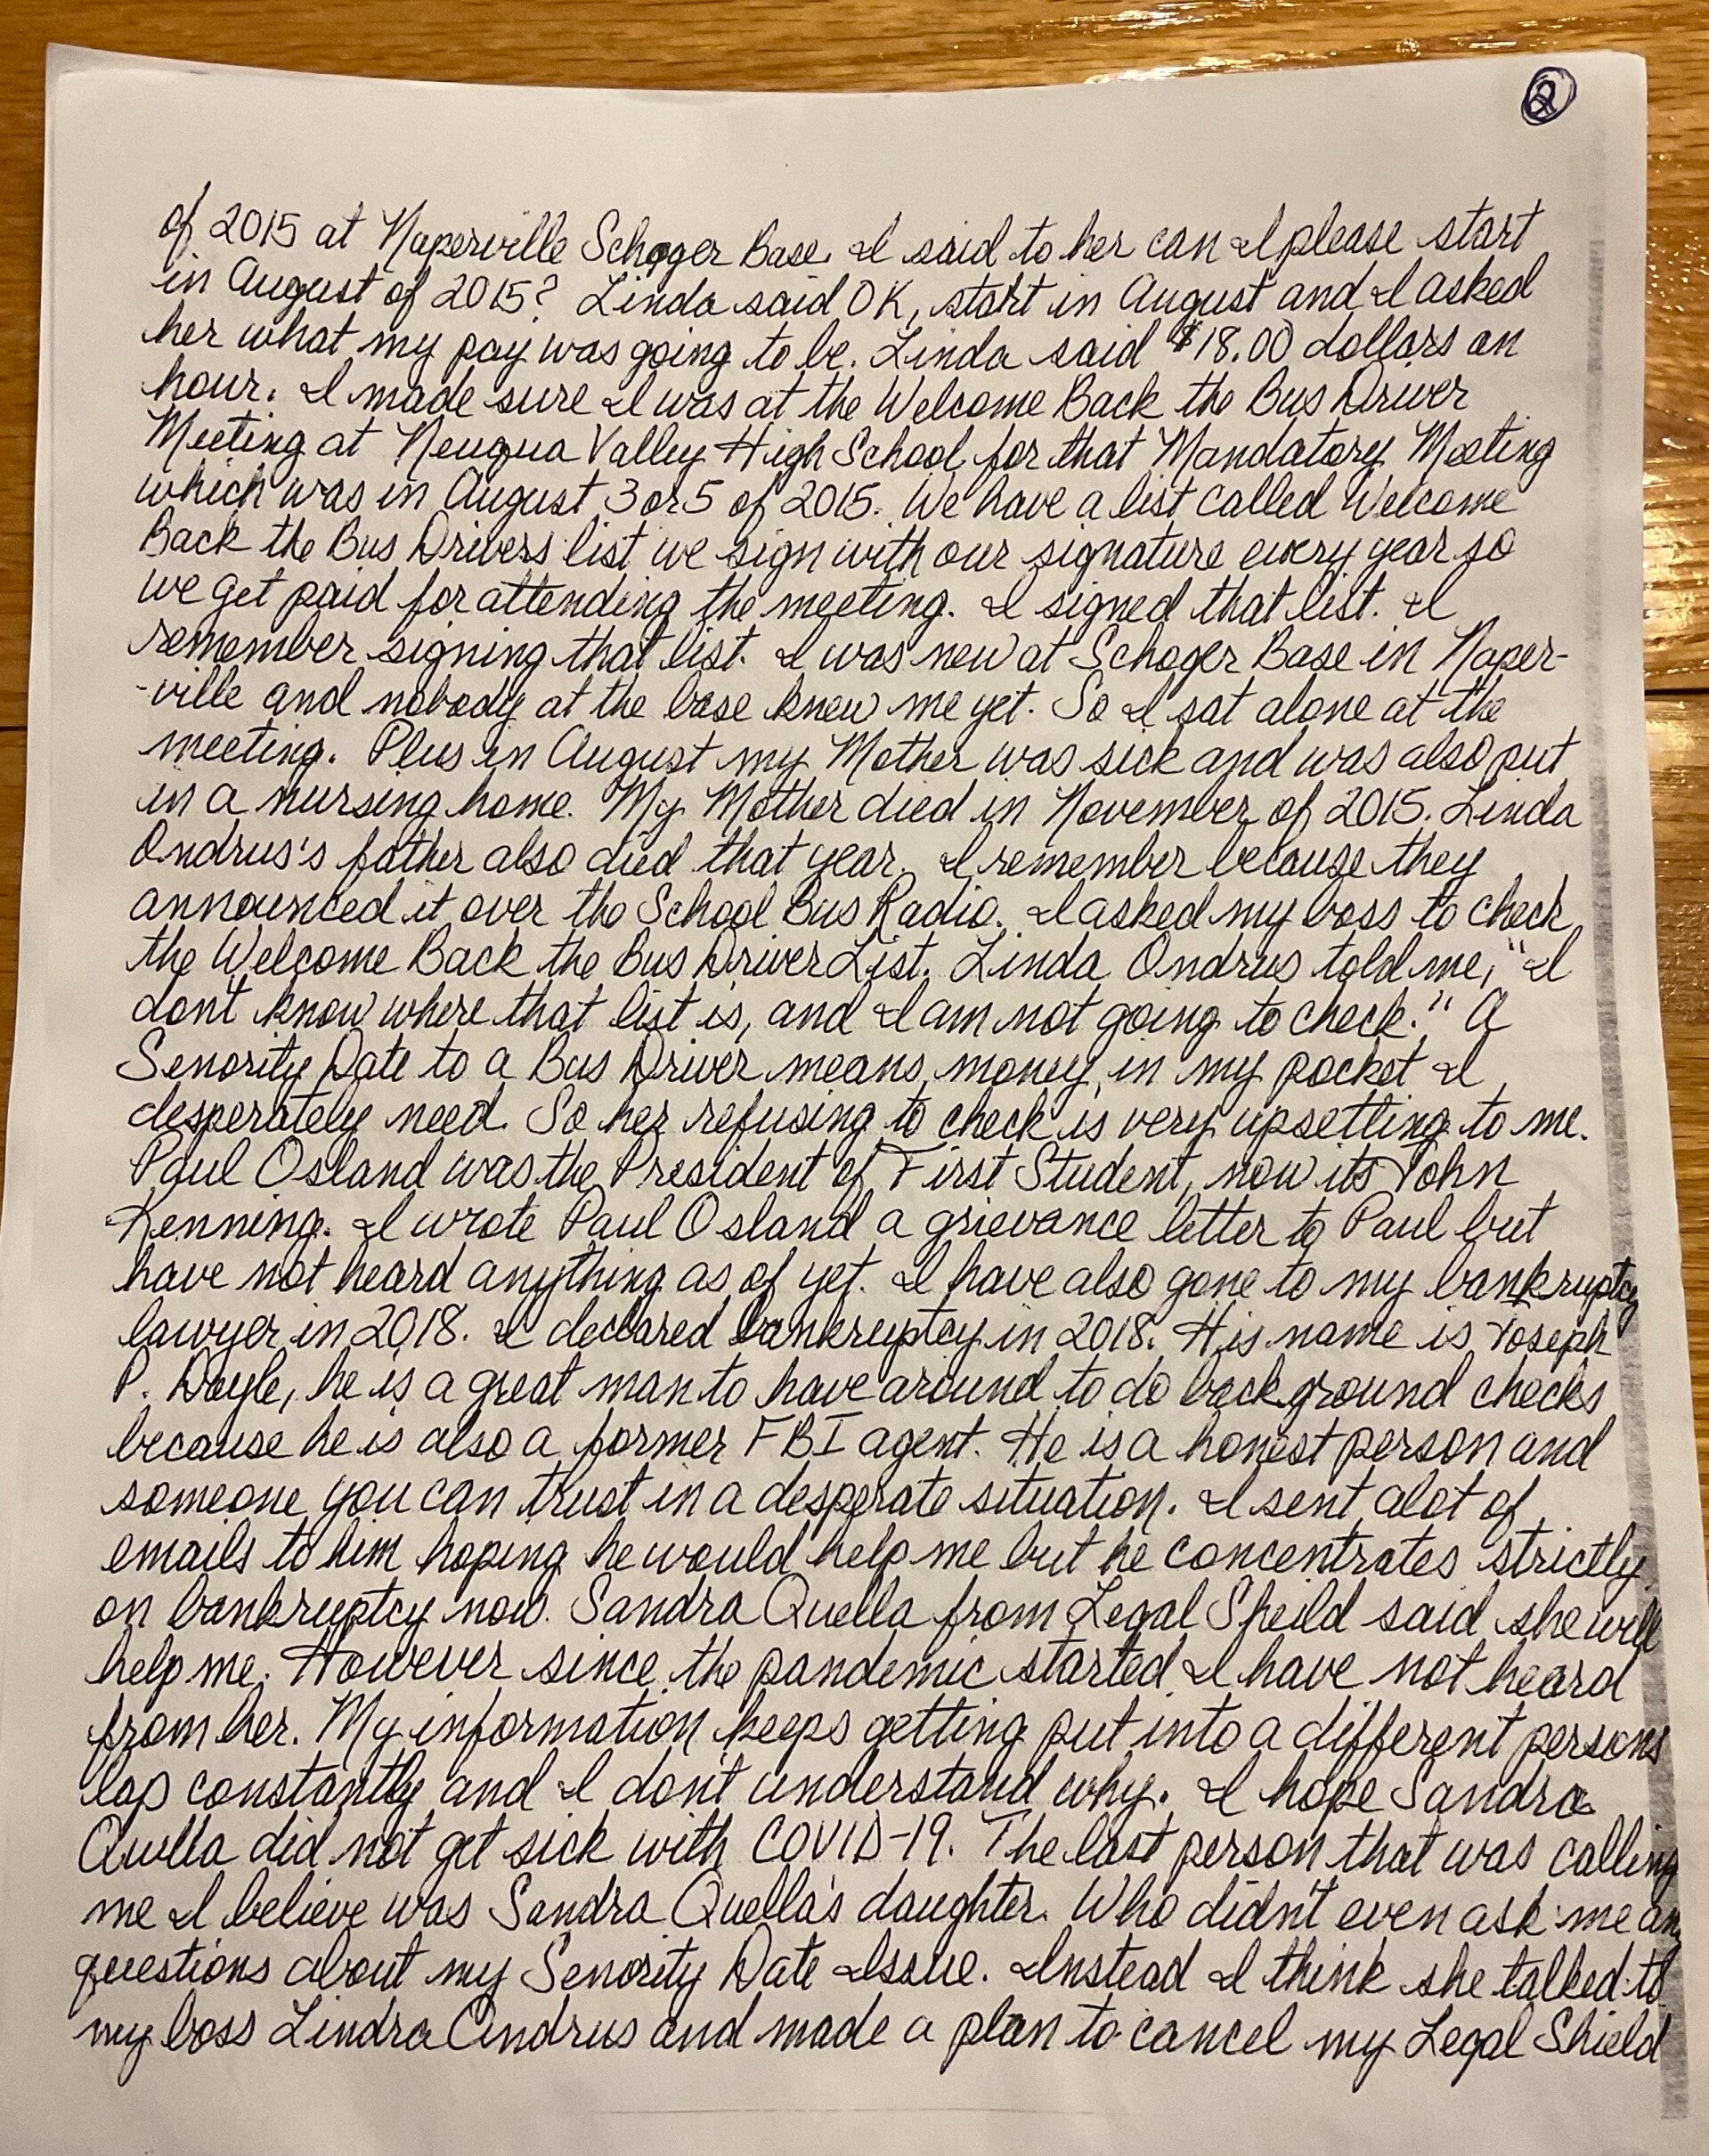 2
of 2015 at Naperville Schoger Base. I said to her can I please start
in August of 2015? Linda said OK, start in August and I asked
her what my pay was going to be. Linda said $18.00 dollars an
hour. I made sure I was at the Welcome Back the Bus Driver
Meeting at Neuqua Valley High School for that Mandatory Meeting
which was in August 3 or 5 of 2015. We have a list called Welcome
Back the Bus Drivers list we sign with our signature every year so
we get paid for attending the meeting. I signed that list. I
remember signing that list. I was new at Schoger Base in Naper-
-ville and nobody at the base knew me yet. So I sat alone at the
meeting. Plus in August my Mother was sick and was also put
in a nursing home. My Mother died in November of 2015. Linda
Ondrus's father also died that year. I remember because they
announced it over the School Bus Radio. I asked my boss to check
the Welcome Back the Bus Driver List. Linda Ondrus told me, "I
don't know where that list is, and I am not going to check." A
Senority Date to a Bus Driver means money in my pocket I
desperately need. So her refusing to check is very upsetting to me.
Paul Osland was the President of First Student, now its John
Kenning. I wrote Paul Osland a grievance letter to Paul but
have not heard anything as of yet. I have also gone to my bankruptcy
lawyer in 2018. I declared bankruptcy in 2018. His name is Joseph
P. Doyle, he is a great man to have around to do background checks
because he is also a former FBI agent. He is a honest person and
someone you can trust in a desperate situation. I sent alot of
emails to him hoping he would help me but he concentrates strictly
on bankruptcy now. Sandra Quella from Legal Sheild said she will
help me. However since the pandemic started I have not heard
from her. My information keeps getting put into a different persons
lap constantly and I don't understand why. I hope Sandra
Quella did not get sick with COVID-19. The last person that was calling
me I believe was Sandra Quella's daughter. Who didn't even ask me any
questions about my Senority Date Issue. Instead I think she talked to
my boss Lindra Ondrus and made a plan to cancel my Legal Shield